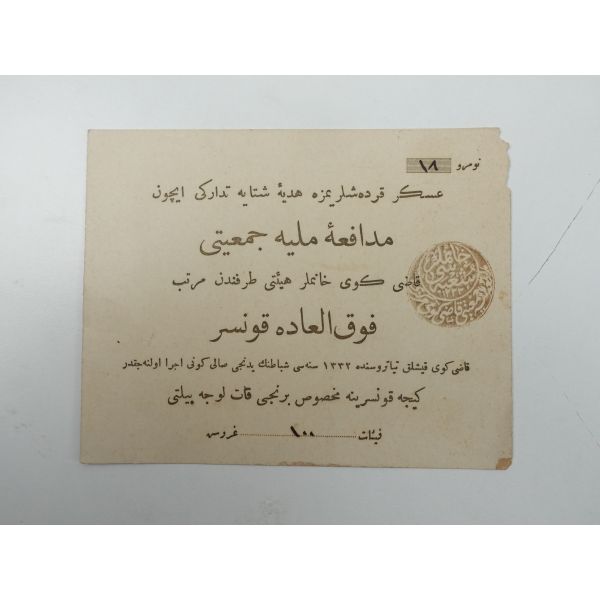 نومرو ١٨
عسكر قرده‌شلریمزه هدیهٔ شتایه تداركی ایچون
مدافعهٔ ملیه جمعیتی
قاضی كوی خانملر هیئتی طرفندن مرتب
فوق العاده قونسر
قاضی كوی قیشلق تیاتروسنده ١٣٣٢ سنه سی شباطنك یدنجی صالی كونی اجرا اولنه‌جقدر
كیجه قونسرینه مخصوص برنجی قات لوجه بیلتی
فیئات ١٠٠ غروس